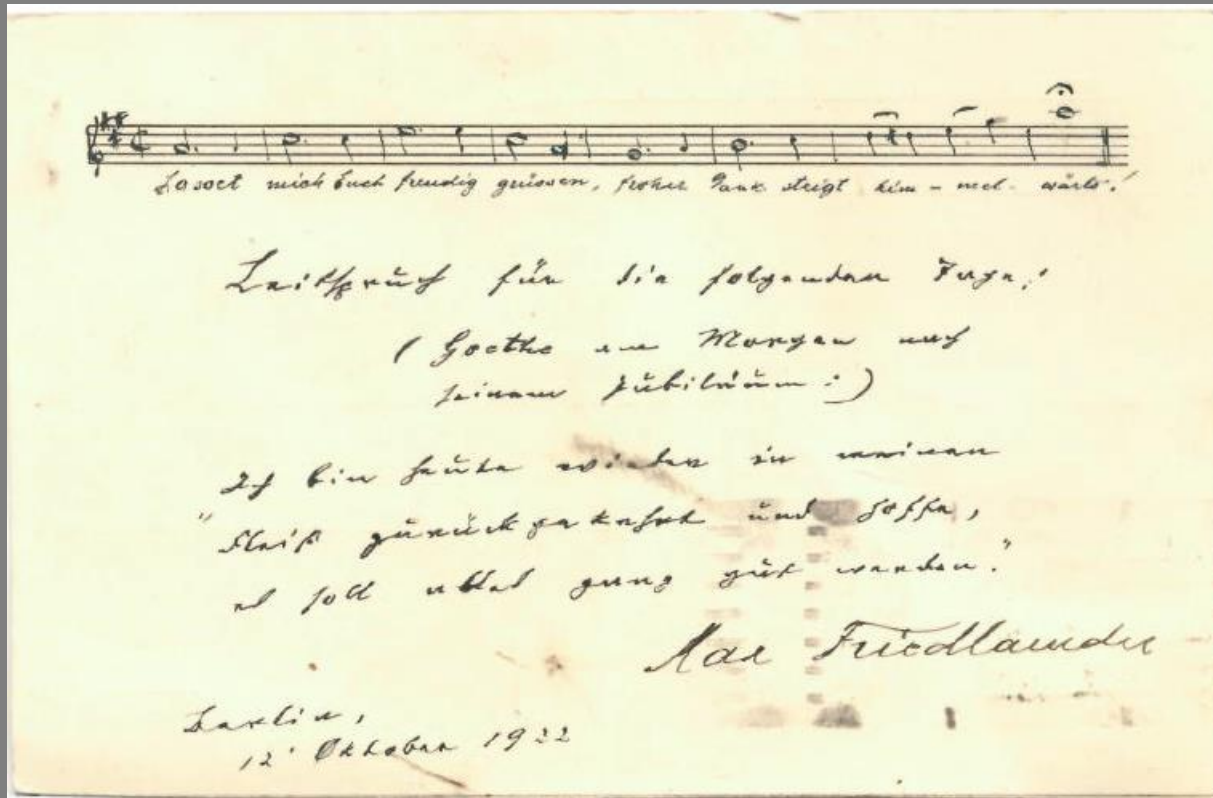 Lasset mich Euch freudig grüssen, froher Dank steigt him-mel-wärts!
Leitspruch für die folgenden Tage:
(Goethe am Morgen nach
seinem Jubiläum:)
Ich bin heute wieder in meinen
"Fleiß zurückgekehrt und hoffe,
es soll alles ganz gut werden."
Max Friedlaender
Berlin,
12. Oktober 1922